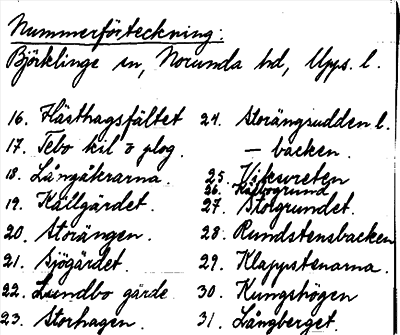 Nummerförteckning:
Björklinge sn, Norunda hd, Upps. l.
16. Hästhagsfältet
17. Tebo kil & plog.
18. Långåkrarna.
19. Källgärdet.
20. Storängen.
21. Sjögärdet.
22. Lundbo gärde
23. Storhagen.
24. Storängsudden l.
— backen.
25. Viksvreten
26. Källvogrund
27. Storgrundet.
28. Rundstensbacken
29. Klappstenarna.
30. Kungshögen
31. Långberget.